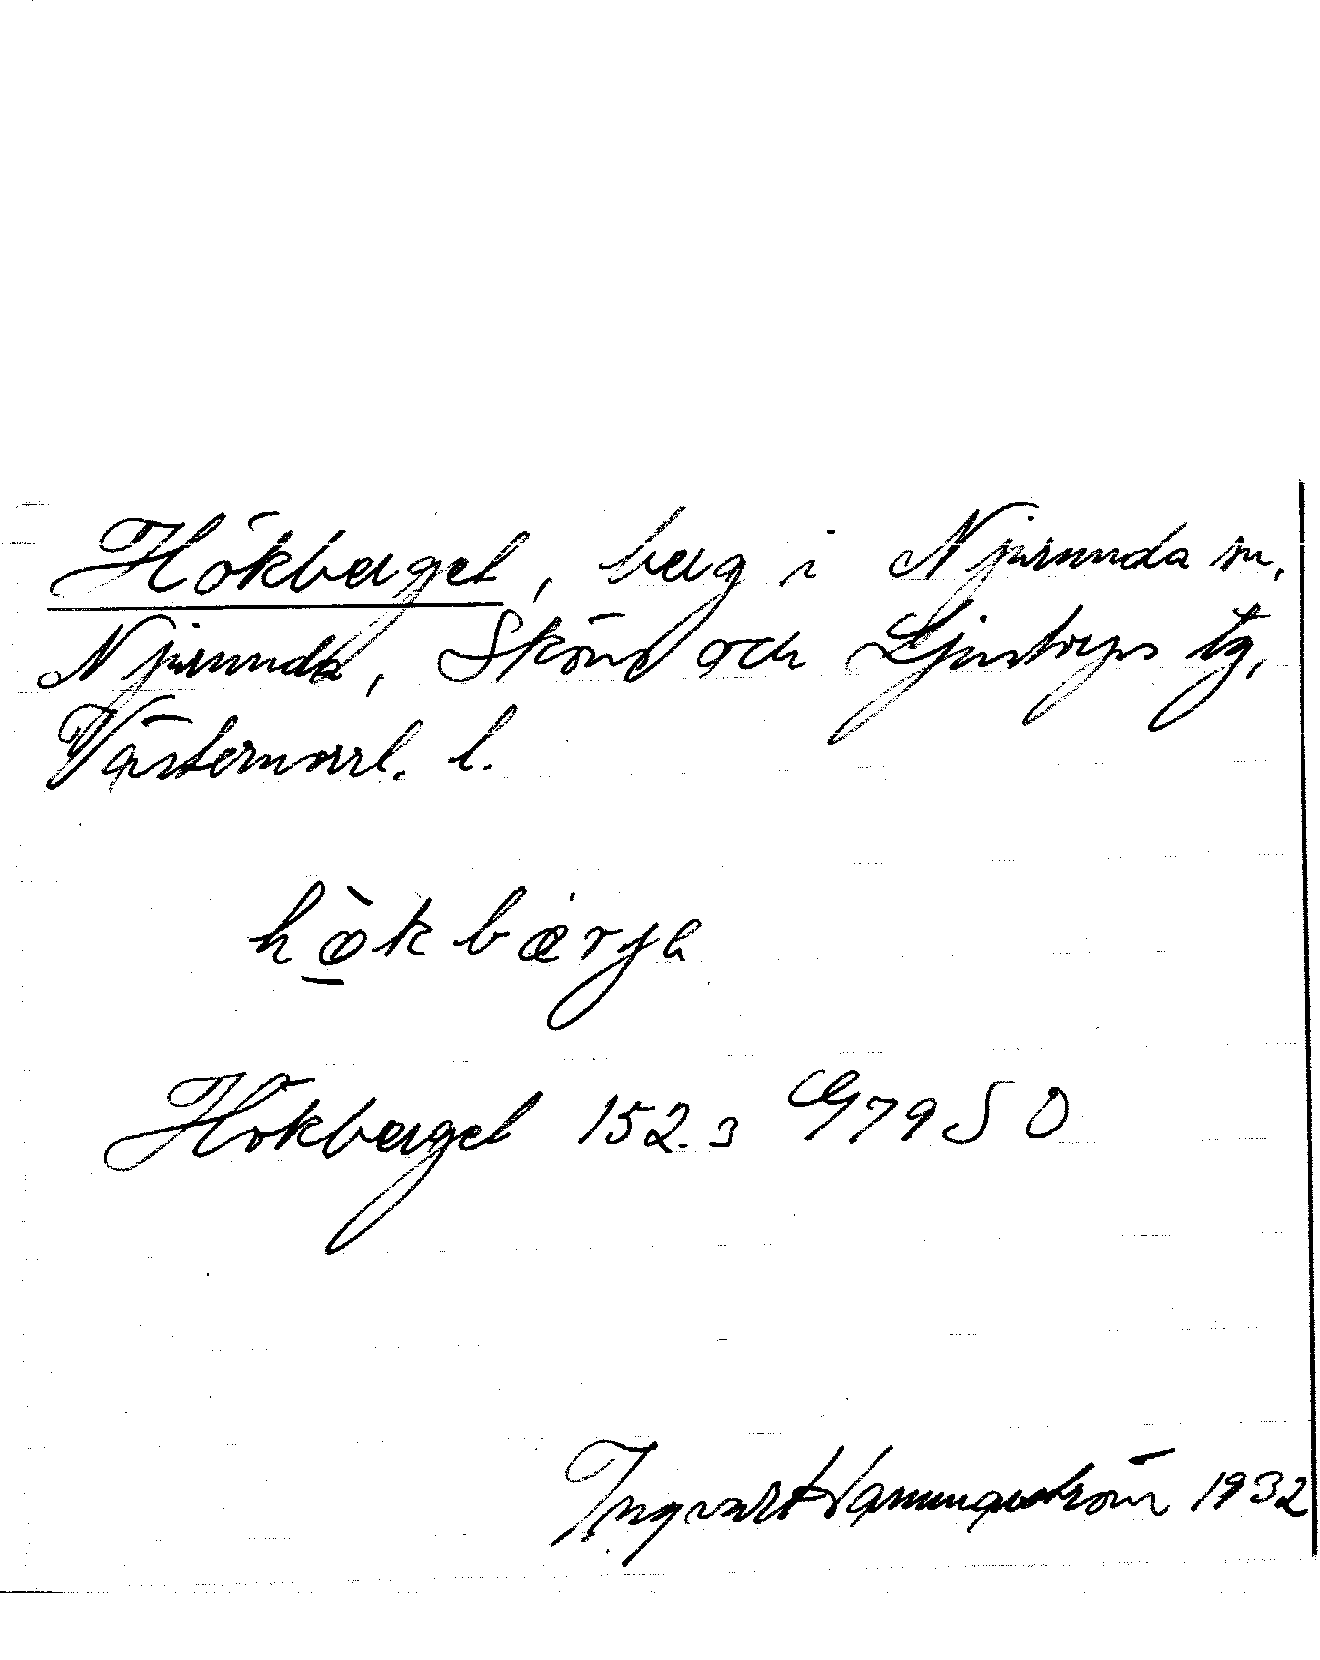 Hökberget, berg i Njurunda sn,
Njurunda, Sköns och Ljustorps tg,
Västernorrl. l.
hø̀kbærja
Hökberget 152.3 G79 SO
Ingvart Hammarström 1932